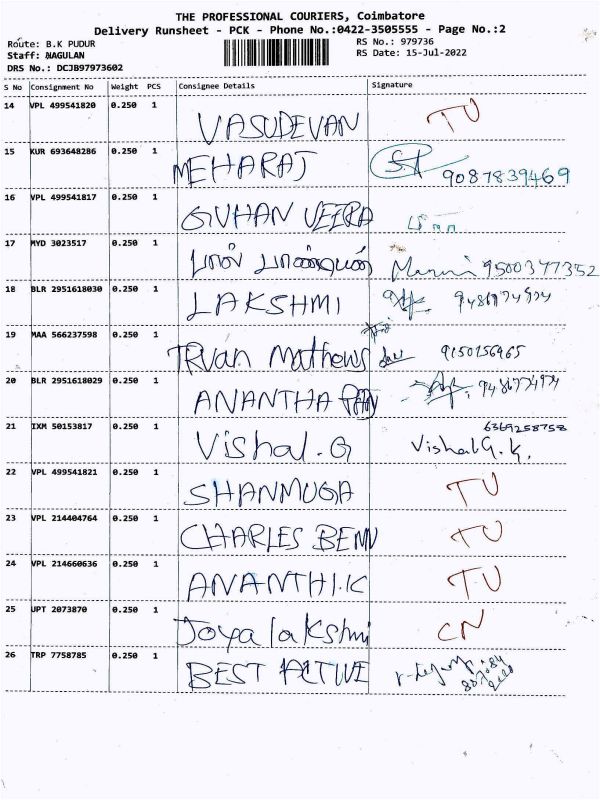 THE PROFESSIONAL COURIERS, Coimbatore
Delivery Runsheet - PCK - Phone No.:0422-3505555 - Page No.:2
Route: B.K PUDUR RS No.: 979736
Staff: NAGULAN RS Date: 15-Jul-2022
DRS No.: DCJB97973602
S No Consignment No Weight PCS Consignee Details Signature
14 VPL 499541820 0.250 1 VASUDEVAN TU
15 KUR 693648286 0.250 1 MEHARAJ 9087839469
16 VPL 499541817 0.250 1 GUHAN VEERA
17 MYD 3023517 0.250 1 பால் பாண்டியன் 9500377352
18 BLR 2951618030 0.250 1 LAKSHMI
19 MAA 566237598 0.250 1 Mathews
20 BLR 2951618029 0.250 1 ANANTHA
21 IXM 50153817 0.250 1 Vishal.G 6369258758
Vishal G.K.
22 VPL 499541821 0.250 1 SHANMUGA TU
23 VPL 214404764 0.250 1 CHARLES BENN TU
24 VPL 214660636 0.250 1 ANANTHI.K TU
25 UPT 2073870 0.250 1 Joyalakshmi CN
26 TRP 7758785 0.250 1 BEST ACTIVE